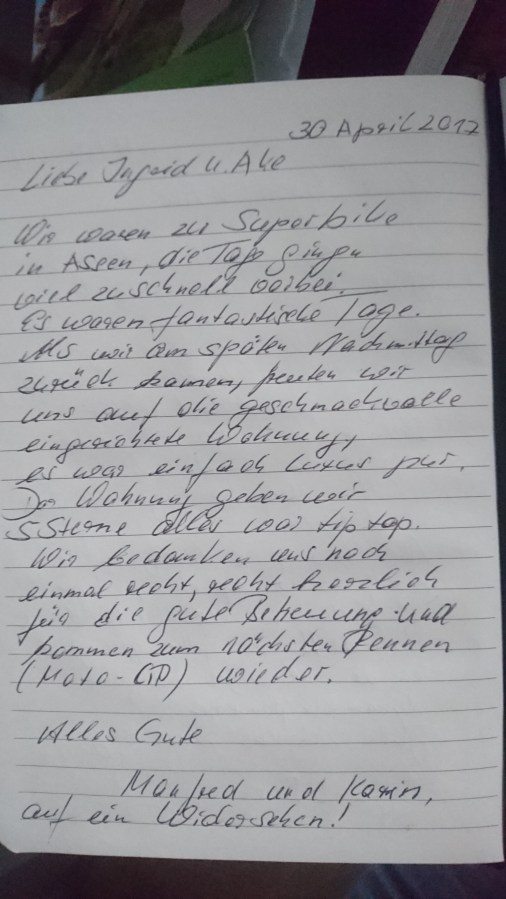 30 April 2017
Liebe Ingrid u. Ake
Wir waren zu Superbike
in Assen, die Tage gingen
viel zu schnell vorbei.
Es waren fantastische Tage.
Als wir am späten Nachmittag
zurück kamen, freuten wir
uns auf die geschmackvolle
eingerichtete Wohnung,
es war einfach Luxus pur.
Der Wohnung geben wir
5 Sterne alles war tip top.
Wir bedanken uns noch
einmal recht, recht herzlich
für die gute Betreuung und
kommen zum nächsten Rennen
(Moto-GP) wieder.
Alles Gute
Manfred und Karin,
auf ein Widersehen!